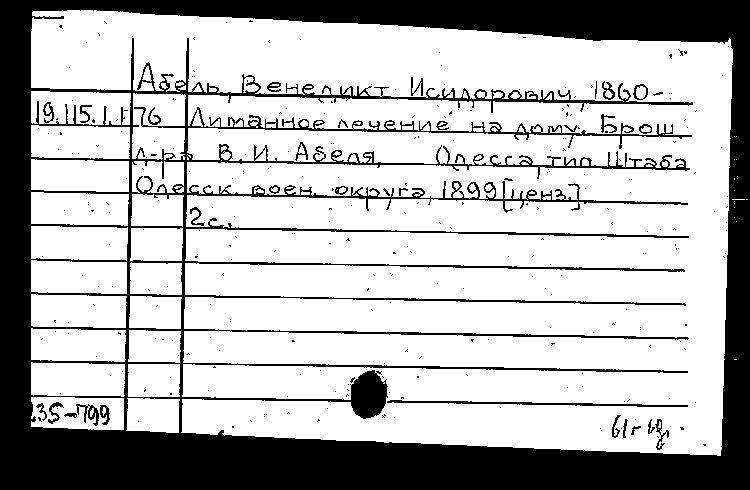 Абель, Венедикт Исидорович, 1860-
19.115.1.176 Лиманное лечение на дому. Брош.
д-ра В. И. Абеля. Одесса, тип. Штаба
Одесск. воен. округа, 1899 [ценз.].
2 с.
235-799